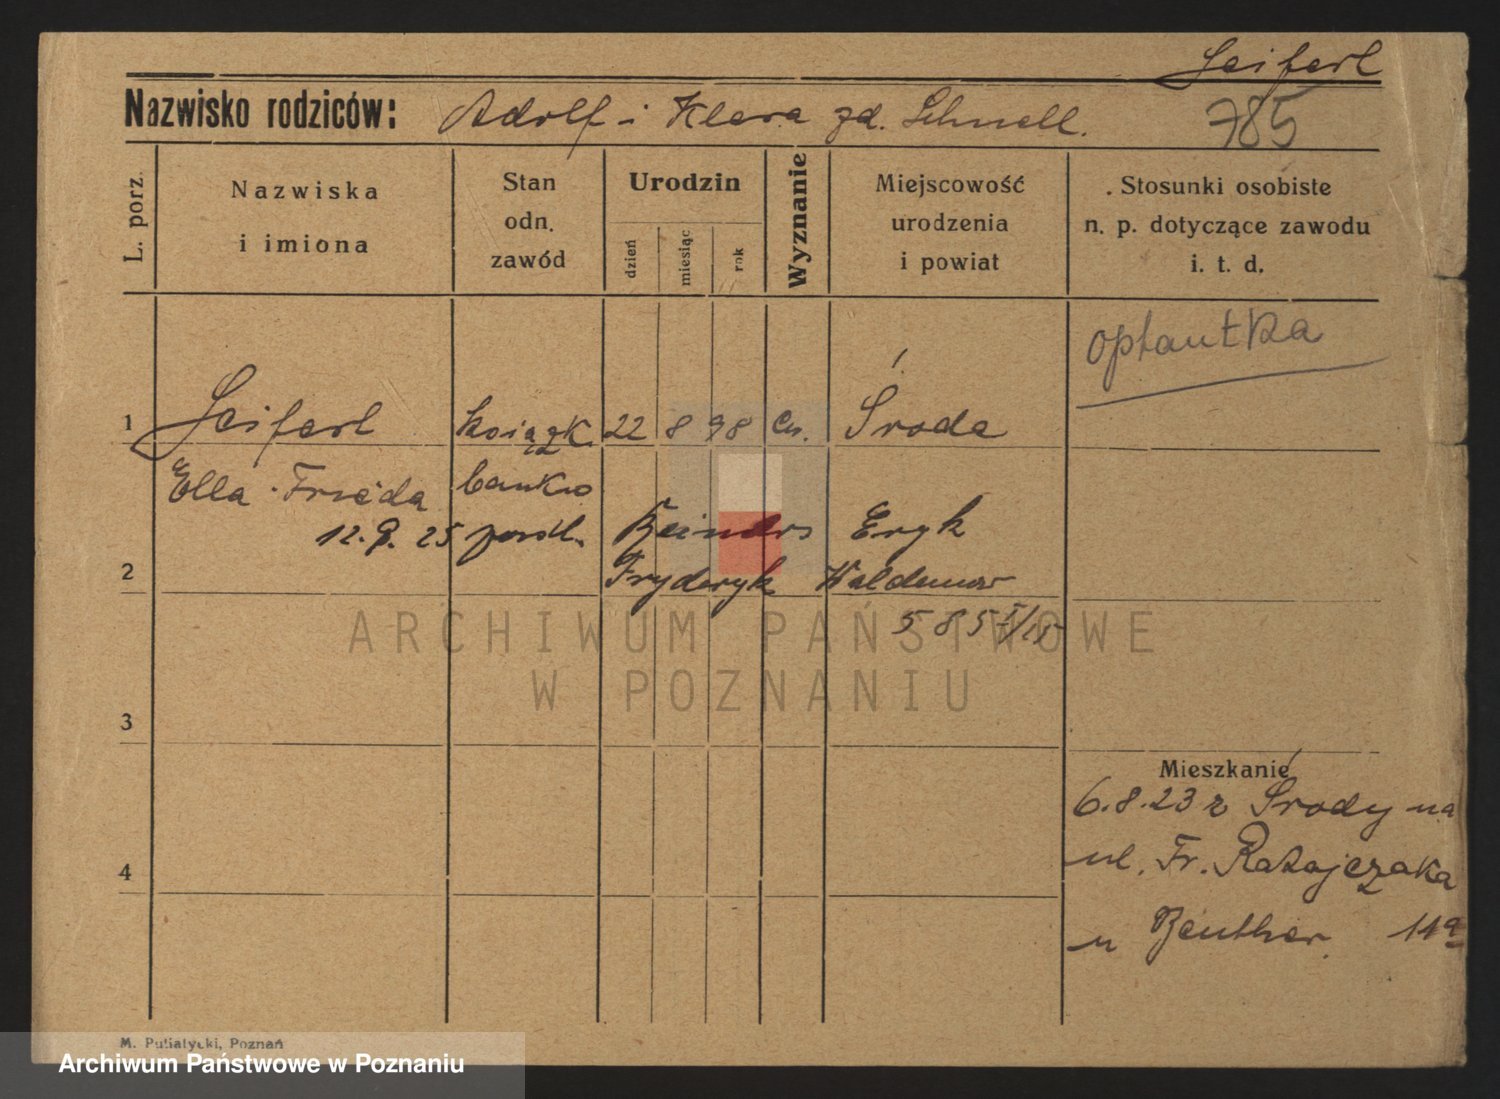 Seifert
Nazwisko rodziców: Adolf i Klara zd. Schnell.
785
L. porz.
Nazwiska
i imiona
Stan
odn.
zawód
Urodzin
dzień
miesiąc
rok
Wyznanie
Miejscowość
urodzenia
i powiat
Stosunki osobiste
n. p. dotyczące zawodu
i. t. d.
optantka
1 Seifert książk. 22 8 98 Ew. Środa
Ella Frieda banko
12. 9. 25 Reinders Eryk
2 Fryderyk Waldemar
585
ARCHIWUM PAŃSTWOWE
W POZNANIU
3
Mieszkanie
6.8.23 z Środy na
4 ul. Fr. Ratajczaka
u Beuther 11a
M. Putiatycki, Poznań
Archiwum Państwowe w Poznaniu